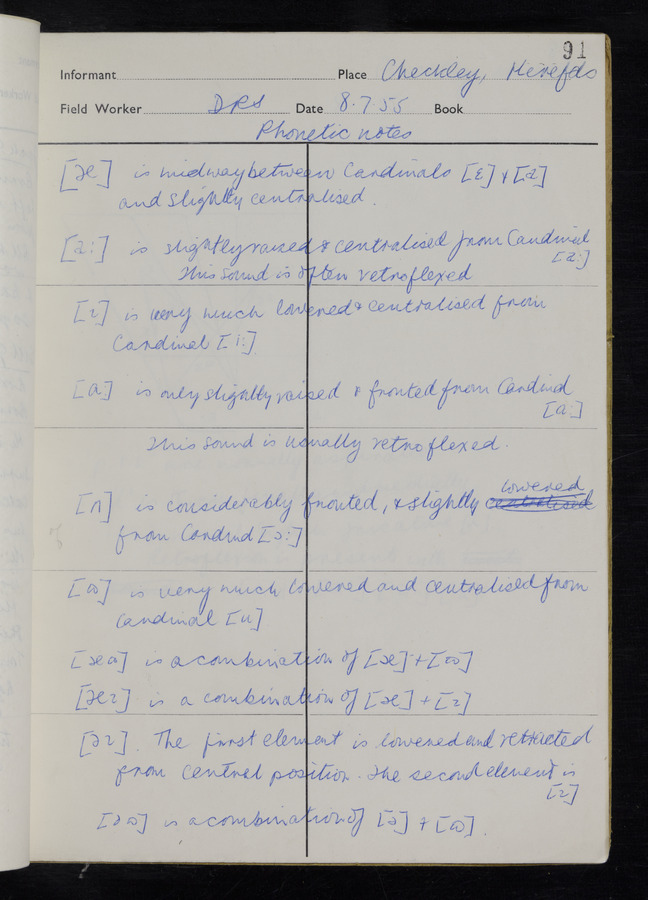 91
Informant Place Checkley, Herefds
Field Worker DRS Date 8.7.55 Book
Phonetic notes
[æ] is midway between Cardinals [ɛ] & [a]
and slightly centralised.
[a:] is slightly raised & centralised from Cardinal
[a:]
This sound is often retroflexed
[ɪ] is very much lowered & centralised from
Cardinal [i:]
[ɑ] is only slightly raised & fronted from Cardinal
[ɑ:]
This sound is usually retroflexed.
[ʌ] is considerably fronted, & slightly lowered
from Cardinal [ɔ:]
[ɷ] is very much lowered and centralised from
Cardinal [u]
[æɷ] is a combination of [æ] + [ɷ]
[æɪ] is a combination of [æ] + [ɪ]
[əɪ]. The first element is lowered and retracted
from central position. The second element is
[ɪ]
[əɷ] is a combination of [ə] + [ɷ].